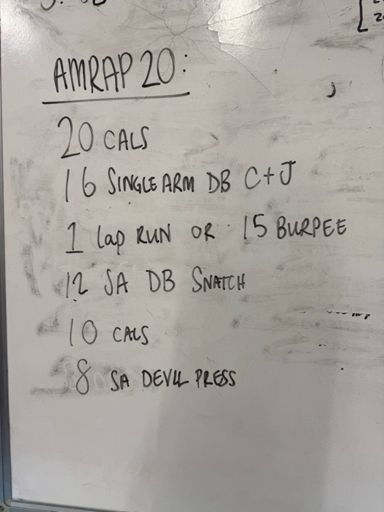 AMRAP 20:
20 CALS
16 SINGLE ARM DB C+J
1 lap RUN OR 15 BURPEE
12 SA DB SNATCH
10 CALS
8 SA DEVIL PRESS